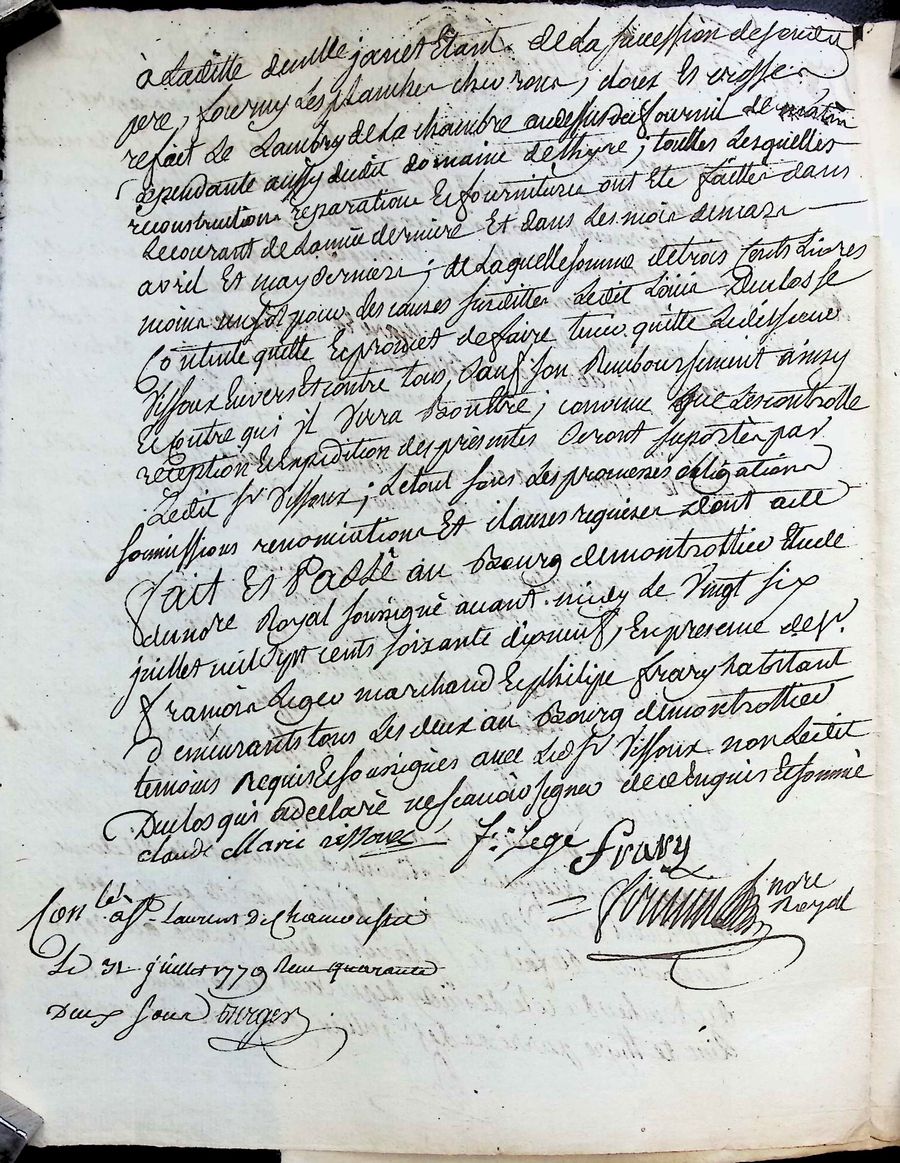 à Laditte demlle janet Etant de La succession de son dit
pere, fourny Les planches chevrons, cloux Et
refait Le Lambry de La chambre audessus du fournil de
dependante aussy dudit domaine de thyre; touttes Lesquelles
reconstructions reparations Et fournitures ont Eté faittes dans
Le courant de Lannée derniere Et dans Les mois de mars
avril Et may derniers; de Laquelle somme de trois cents Livres
moins un sol pour Les causes susdittes Ledit Loüis Duclos se
Contente quitte Et promet de faire tenir quitte Ledit sieur
Vissoux Envers Et contre tous, Sauf son Remboursement ainsy
Et contre qui jl Verra Bonêtre; convenu que Les controlle
reception Et expedition des presentes Seront suportés par
Ledit sr Vissoux; Le tout sous Les promesses obligations
soumissions renonciations Et clauses requises dont acte
fait Et Passé au Bourg de montrottier Etude
du nore Royal soussigné avant midy Le Vingt six
juillet mil sept cents soixante dixneuf, En presence de sr
françois Leger marchand Et philipe frary habitant
Demeurants tous Les deux au Bourg de montrottier
temoins Requis Et soussignés avec Ledt sr Vissoux non Ledit
Duclos qui a declaré ne scavoir signer de ce Enquis Et sommé
claude Marie vissoux fr. Legé frary
nore
Royal
Conlé à St. Laurent de Chamousset
Le 31 juillet 1779 Reçu quarante
Deux sous